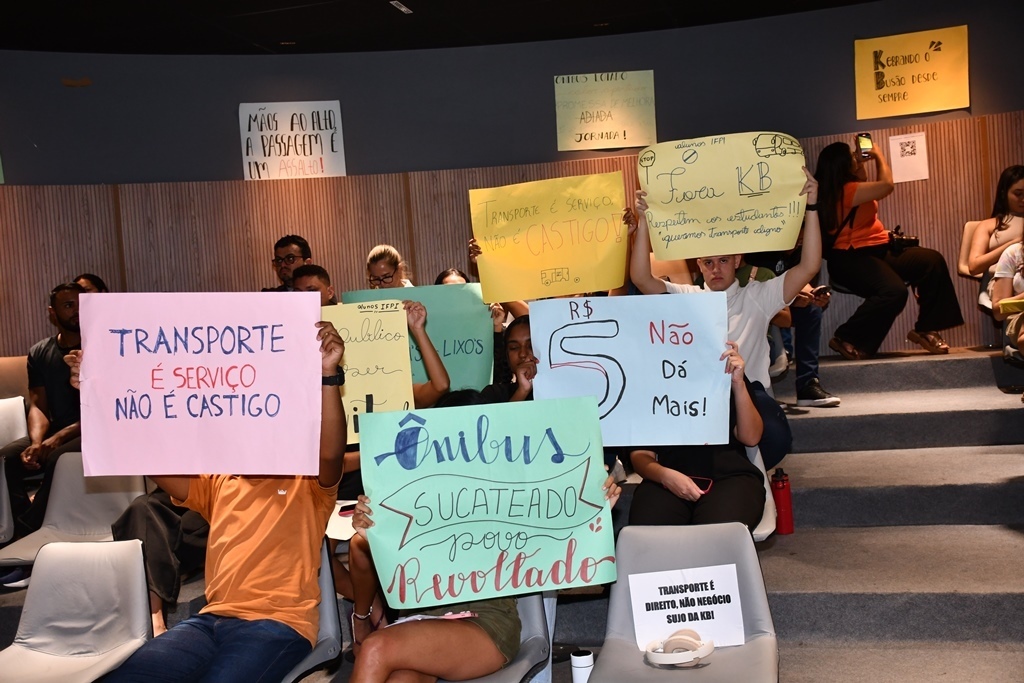 MÃOS AO ALTO,
A PASSAGEM É
UM ASSALTO!
ÔNIBUS LOTADO
ADIADA
JORNADA!
KEBRANDO O
BUSÃO DESDE
SEMPRE
STOP
alunos IFPI
Fora KB
Respeitem os estudantes!!!
"queremos transporte digno"
TRANSPORTE É SERVIÇO,
NÃO É CASTIGO!
TRANSPORTE
É SERVIÇO
NÃO É CASTIGO
alunos IFPI
LIXO'S
R$
5
Não
Dá
Mais!
Ônibus
SUCATEADO
povo
Revoltado
TRANSPORTE É
DIREITO, NÃO NEGÓCIO
SUJO DA KB!